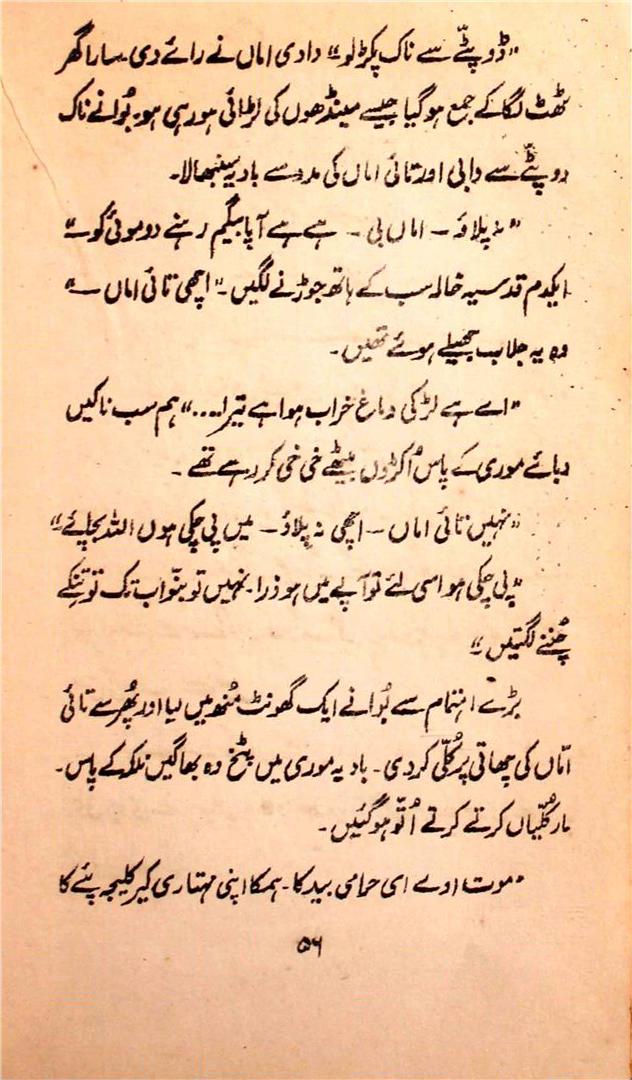 "ڈوپٹّے سے ناک پکڑ لو" دادی اماں نے رائے دی۔ سارا گھر
ٹھٹ لگا کے جمع ہو گیا جیسے مینڈھوں کی لڑائی ہو رہی ہو۔ بُوا نے ناک
دوپٹّے سے دابی اور تائی اماں کی مدد سے بادیہ سنبھالا۔
"نہ پلاؤ — اماں بی — ہے ہے آپا بیگم رہنے دو موئی کو —"
ایکدم قدسیہ خالہ سب کے ہاتھ جوڑنے لگیں۔ "اچھی تائی اماں —"
وہ یہ جلاب جھیلے ہوئے تھیں۔
"اے ہے لڑکی دماغ خراب ہوا ہے تیرا...." ہم سب ناکیں
دبائے موری کے پاس اُکڑوں بیٹھے خی خی کر رہے تھے۔
"نہیں تائی اماں — اچھی نہ پلاؤ — میں پی چکی ہوں اللہ بچائے"
"پی چکی ہو اسی لئے تو آپے میں ہو ذرا۔ نہیں تو بنّو اب تک تو تنکے
چُننے لگتیں"
بڑے اہتمام سے بُوا نے ایک گھونٹ مُنھ میں لیا اور پُھر سے تائی
امّاں کی چھاتی پر کُلّی کر دی۔ بادیہ موری میں پٹخ وہ بھاگیں نلکے کے پاس۔
مار کُلّیاں کرتے کرتے اُتّو ہو گئیں۔
"موت اوے ای حرامی بید کا۔ ہمکا اپنی مہتاری کیر کلیجہ پئے کا
۵۶